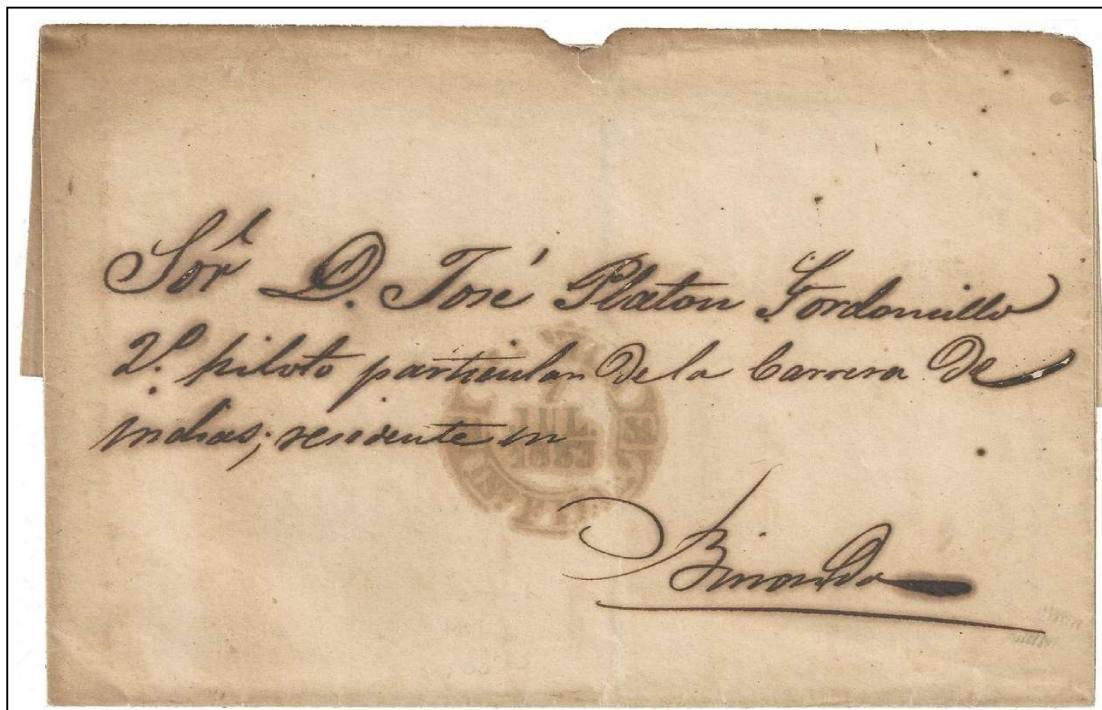 Sor. D. José Platon Gordoncillo
2º. piloto particular de la Carrera de
indias; residente en
JUL.
Binondo